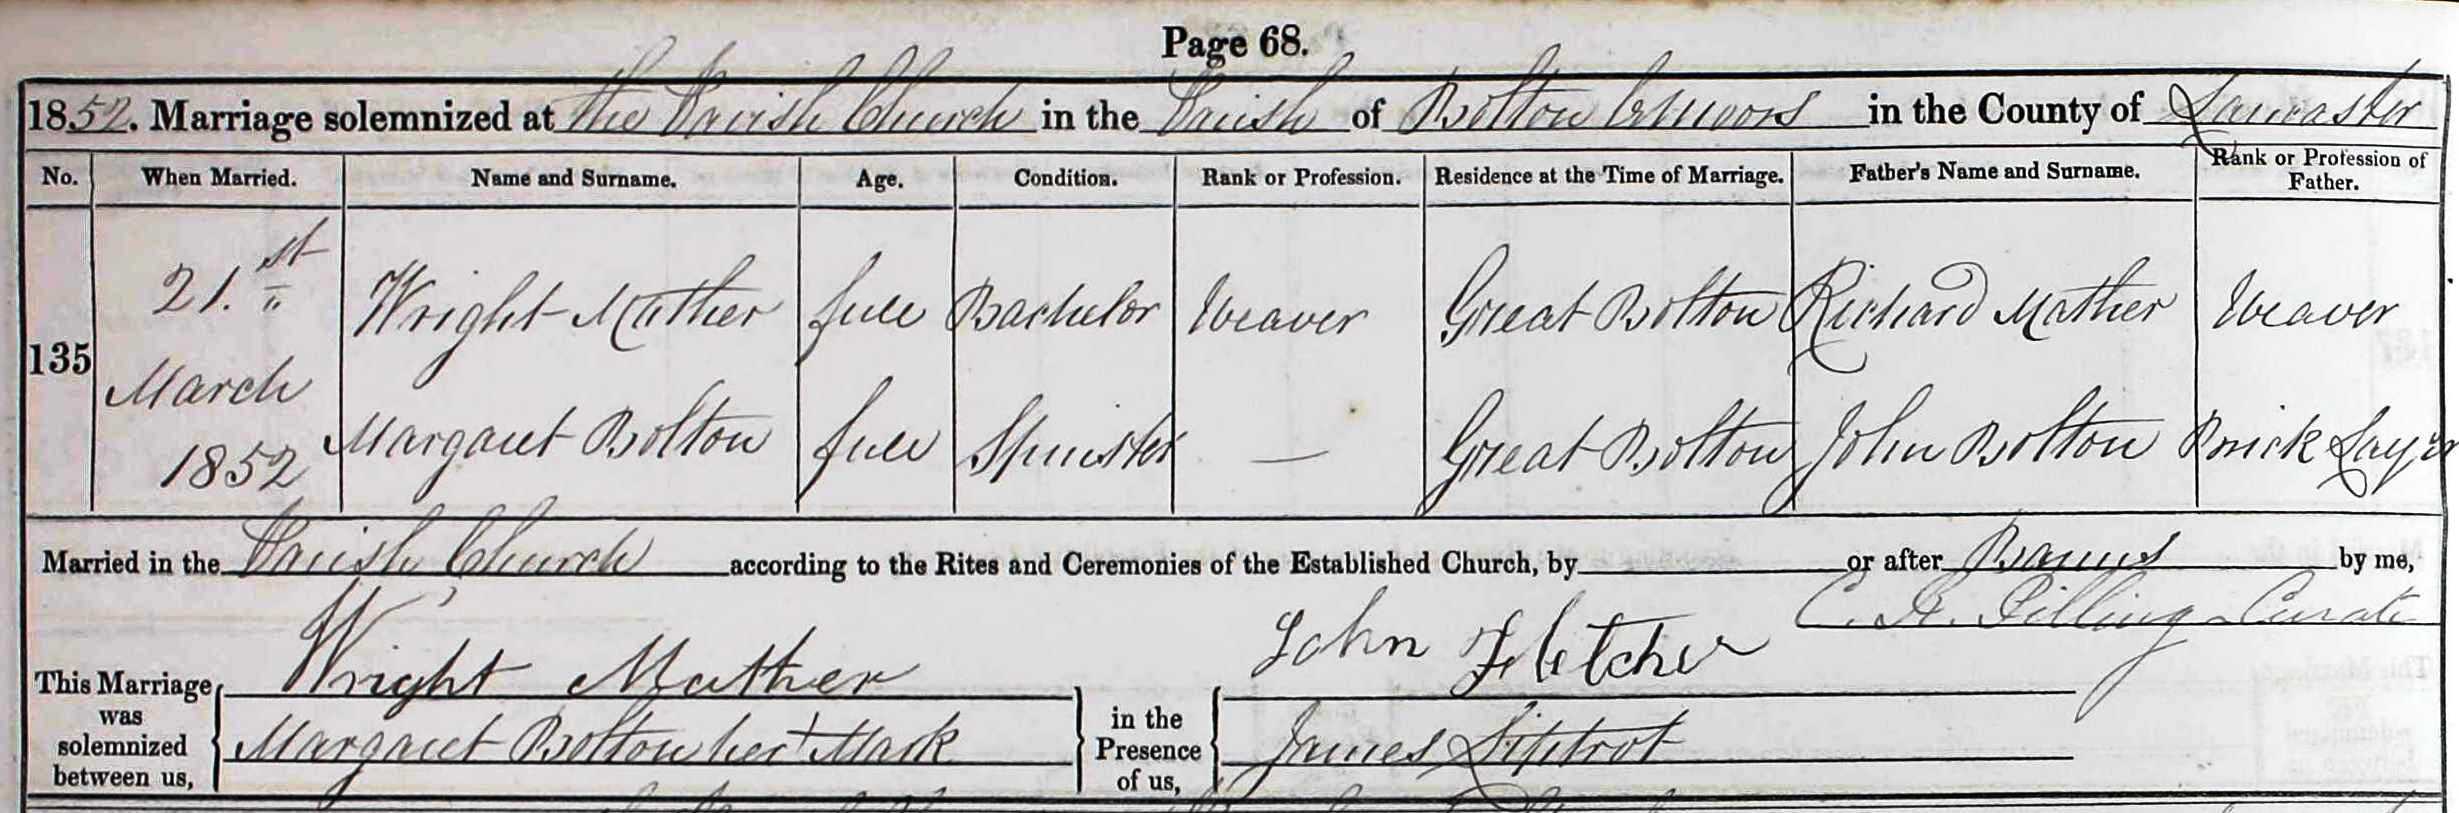 Page 68.
1852. Marriage solemnized at the Parish Church in the Parish of Bolton le Moors in the County of Lancaster
No. When Married. Name and Surname. Age. Condition. Rank or Profession. Residence at the Time of Marriage. Father's Name and Surname. Rank or Profession of Father.
135 21.st March 1852
Wright Mather full Bachelor Weaver Great Bolton Richard Mather Weaver
Margaret Bolton full Spinster — Great Bolton John Bolton Brick Layer
Married in the Parish Church according to the Rites and Ceremonies of the Established Church, by or after Banns by me,
C. H. Pilling Curate
This Marriage was solemnized between us,
Wright Mather
Margaret Bolton her + Mark
in the Presence of us,
John Fletcher
James Siptrot